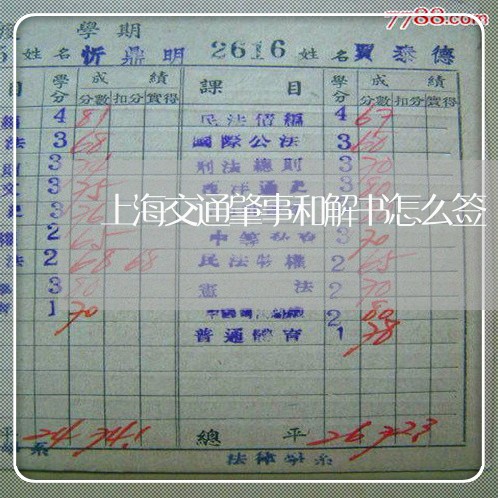 7788.com
學期
5 姓名 忻鼎明 2616 姓名 賈泰德
目 學分 成績 課目 學分 成績
分數 扣分 實得 分數 扣分 實得
4 81 民法債編 4 67
法 3 68 國際公法 3 60
3 刑法總則 3 70
3 75 西洋通史 3
上海交通肇事和解书怎么签
2 65 3 70
法 2 68 68 民法物權 2 65
3 80 憲法 2 70
1 70 2 80
普通體育 1 78
平 24 總平 26
系 法律學系